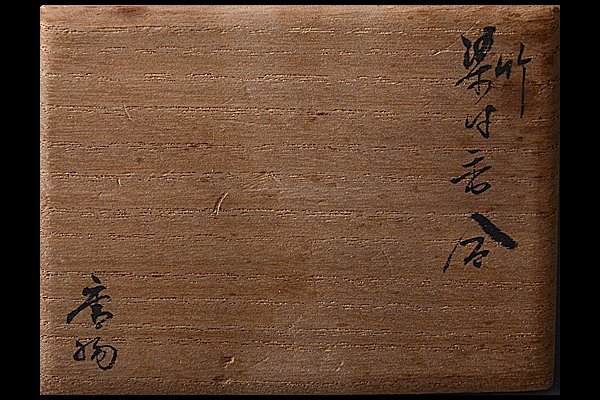 竹
染付香合
唐物